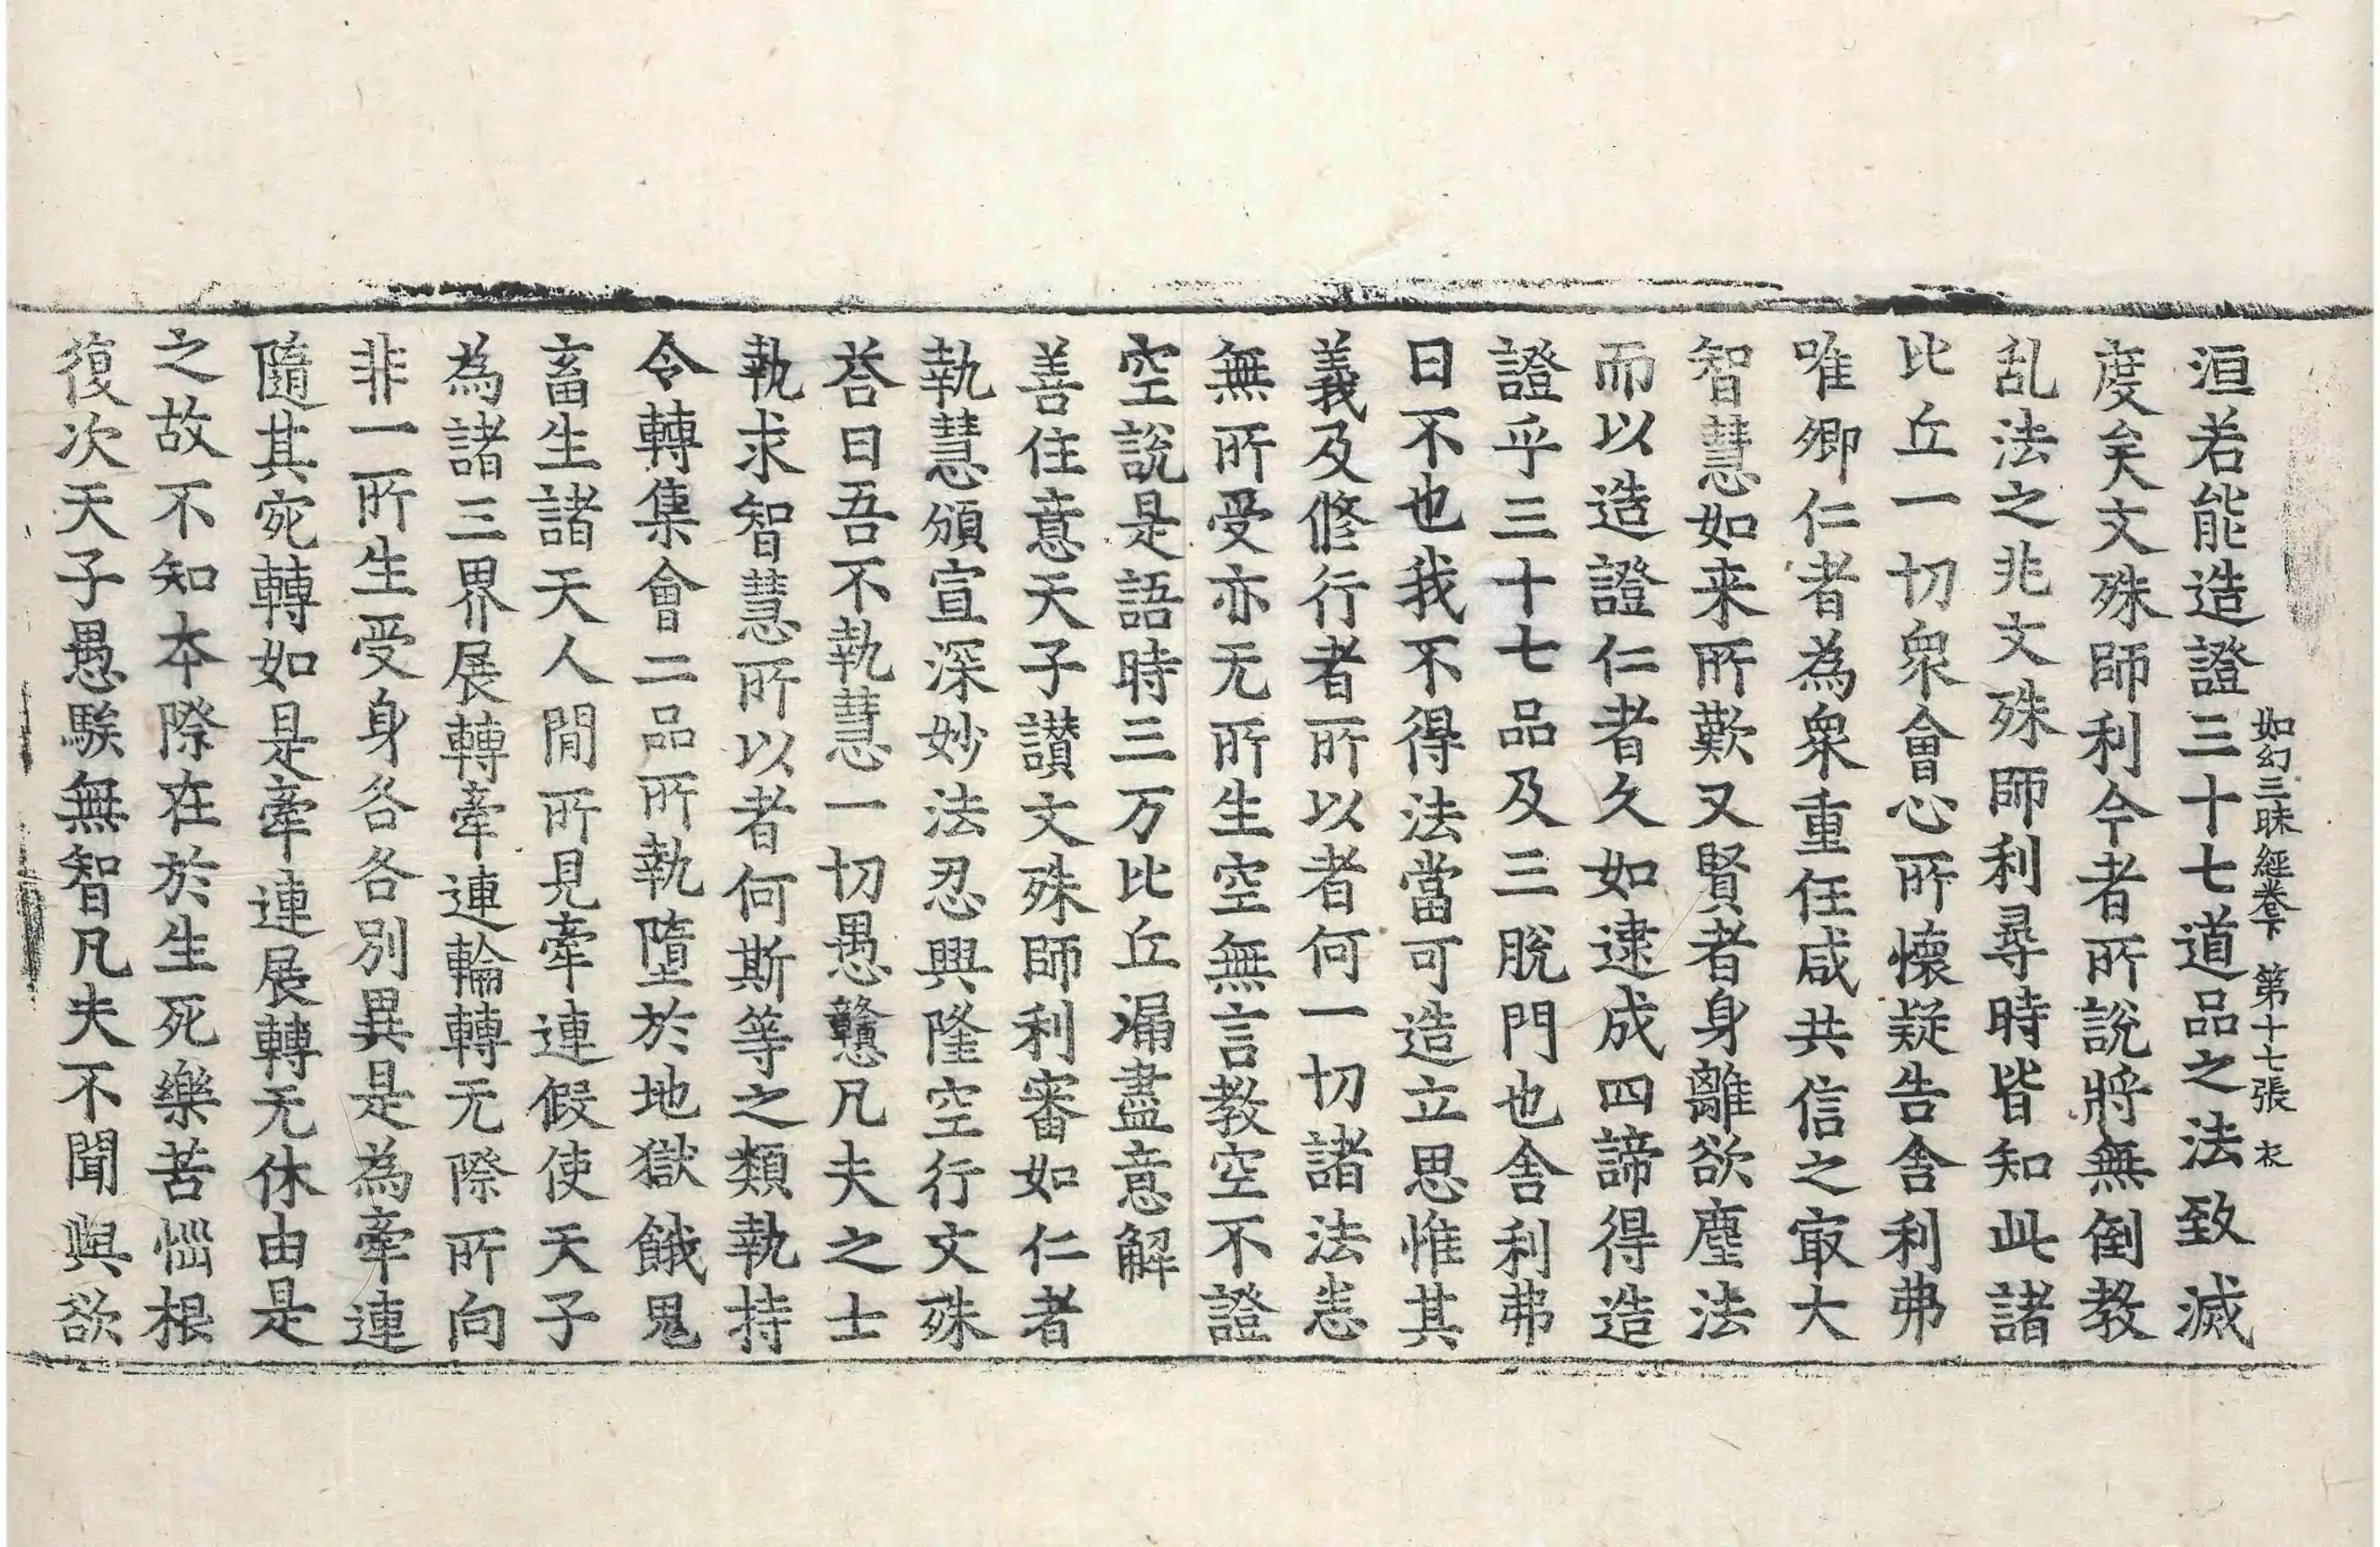 洹若能造證三十七道品之法致滅
如幻三昧經卷下 第十七張 衣
度矣文殊師利今者所說將無倒教
乱法之兆文殊師利尋時皆知此諸
比丘一切衆會心所懷疑告舍利弗
唯卿仁者為衆重任咸共信之㝡大
智慧如来所歎又賢者身離欲塵法
而以造證仁者久如逮成四諦得造
證乎三十七品及三脫門也舍利弗
曰不也我不得法當可造立思惟其
義及修行者所以者何一切諸法恚
無所受亦无所生空無言教空不證
空說是語時三万比丘漏盡意解
善住意天子讃文殊師利審如仁者
執慧頒宣深妙法忍興隆空行文殊
荅曰吾不執慧一切愚戇凡夫之士
執求智慧所以者何斯等之類執持
令轉集會二品所執墮於地獄餓鬼
畜生諸天人間所見牽連假使天子
為諸三界展轉牽連輪轉无際所向
非一所生受身各各別異是為牽連
隨其宛轉如是牽連展轉无休由是
之故不知本際在於生死樂苦惱根
復次天子愚騃無智凡夫不聞與欲